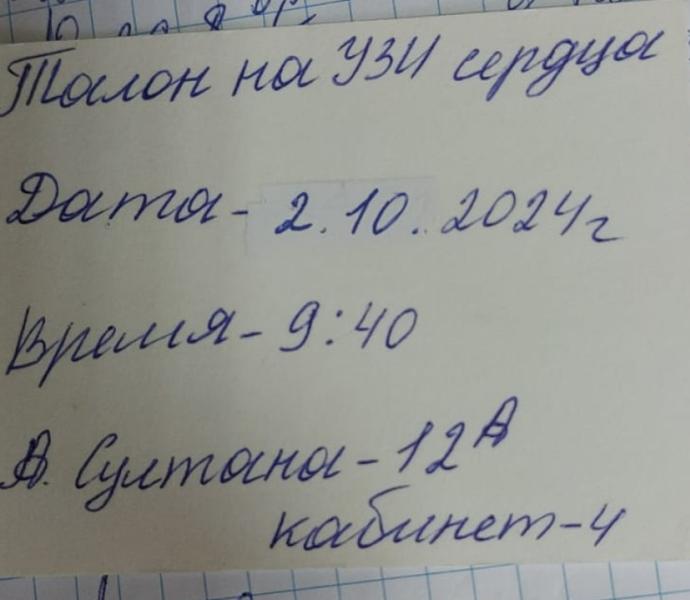 Талон на УЗИ сердца
Дата - 2.10.2024г
Время - 9:40
А. Султана - 12А
кабинет - 4